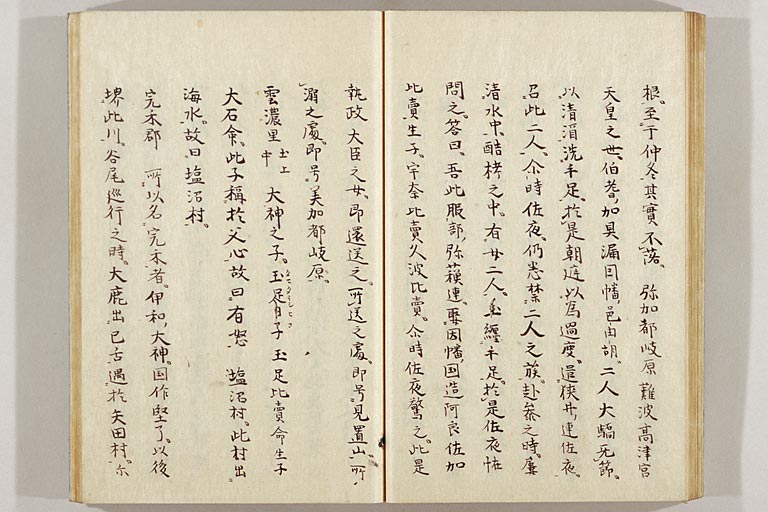 根至于仲冬其實不落 弥加都岐原 難波高津宮
天皇之世伯耆加具漏因幡邑由胡二人大驕无節
以清酒洗手足於是朝廷以為過度遣狭井連佐夜
召此二人尒時佐夜仍悉禁二人之族赴参之時屢
清水中酷拷之中有女二人玉纏手足於是佐夜怪
問之答曰吾此服部弥蘓連娶因幡国造阿良佐加
比賣生子宇奈比賣久波比賣尒時佐夜驚之此是
執政大臣之女即還送之所送之處即号見置山所
溺之處即号美加都岐原
雲濃里 土中上 大神之子玉足日子玉足比賣命生子
大石命此子稱於父心故曰有怒 塩沼村此村出
海水故曰塩沼村
宍禾郡 所以名宍禾者伊和大神国作堅了以後
堺此川谷尾巡行之時大鹿出己舌遇於矢田村尒